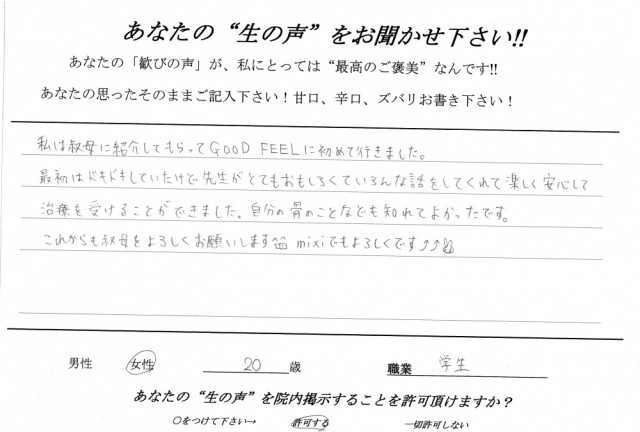 あなたの“生の声”をお聞かせ下さい!!
あなたの「歓びの声」が、私にとっては“最高のご褒美”なんです!!
あなたの思ったそのままご記入下さい！甘口、辛口、ズバリお書き下さい！
私は叔母に紹介してもらってGOOD FEELに初めて行きました。
最初はドキドキしていたけど先生がとてもおもしろくていろんな話をしてくれて楽しく安心して
治療を受けることができました。自分の骨のことなども知れてよかったです。
これからも叔母をよろしくお願いします mixiでもよろしくです⤴⤴
男性 女性 20 歳 職業 学生
あなたの“生の声”を院内掲示することを許可頂けますか？
○をつけて下さい→ 許可する 一切許可しない